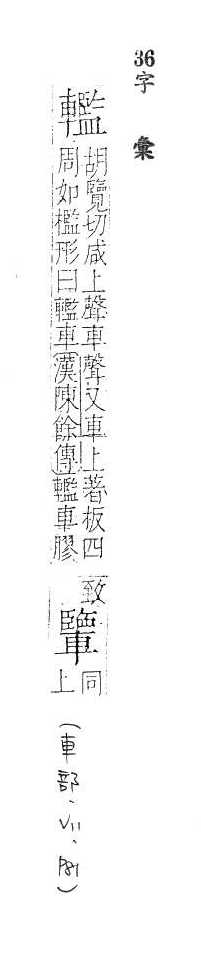 36
字彙
轞
胡覽切咸上聲車聲又車上著板四
周如檻形曰轞車漢陳餘傳轞車膠
致
𨎴
同
上
(車部、VII、P81)